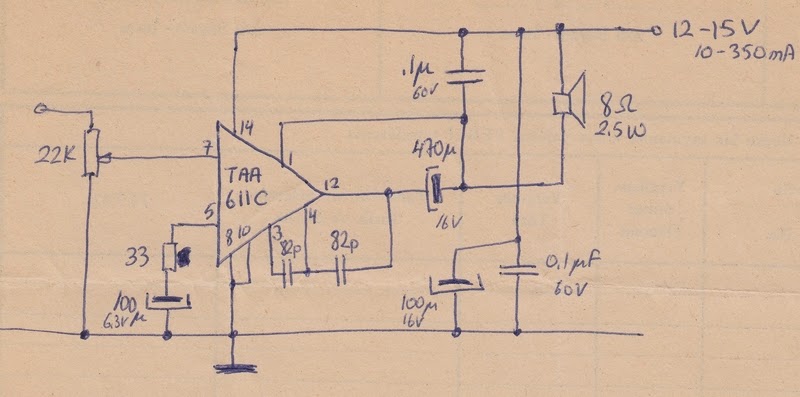 12-15V
10-350mA
.1µ
60V
8Ω
2.5W
14
22K
7
1
TAA
611C
12
470µ
16V
5
4
8 10 3
82p
82p
33
100µ
6.3V
100µ
16V
0.1µF
60V